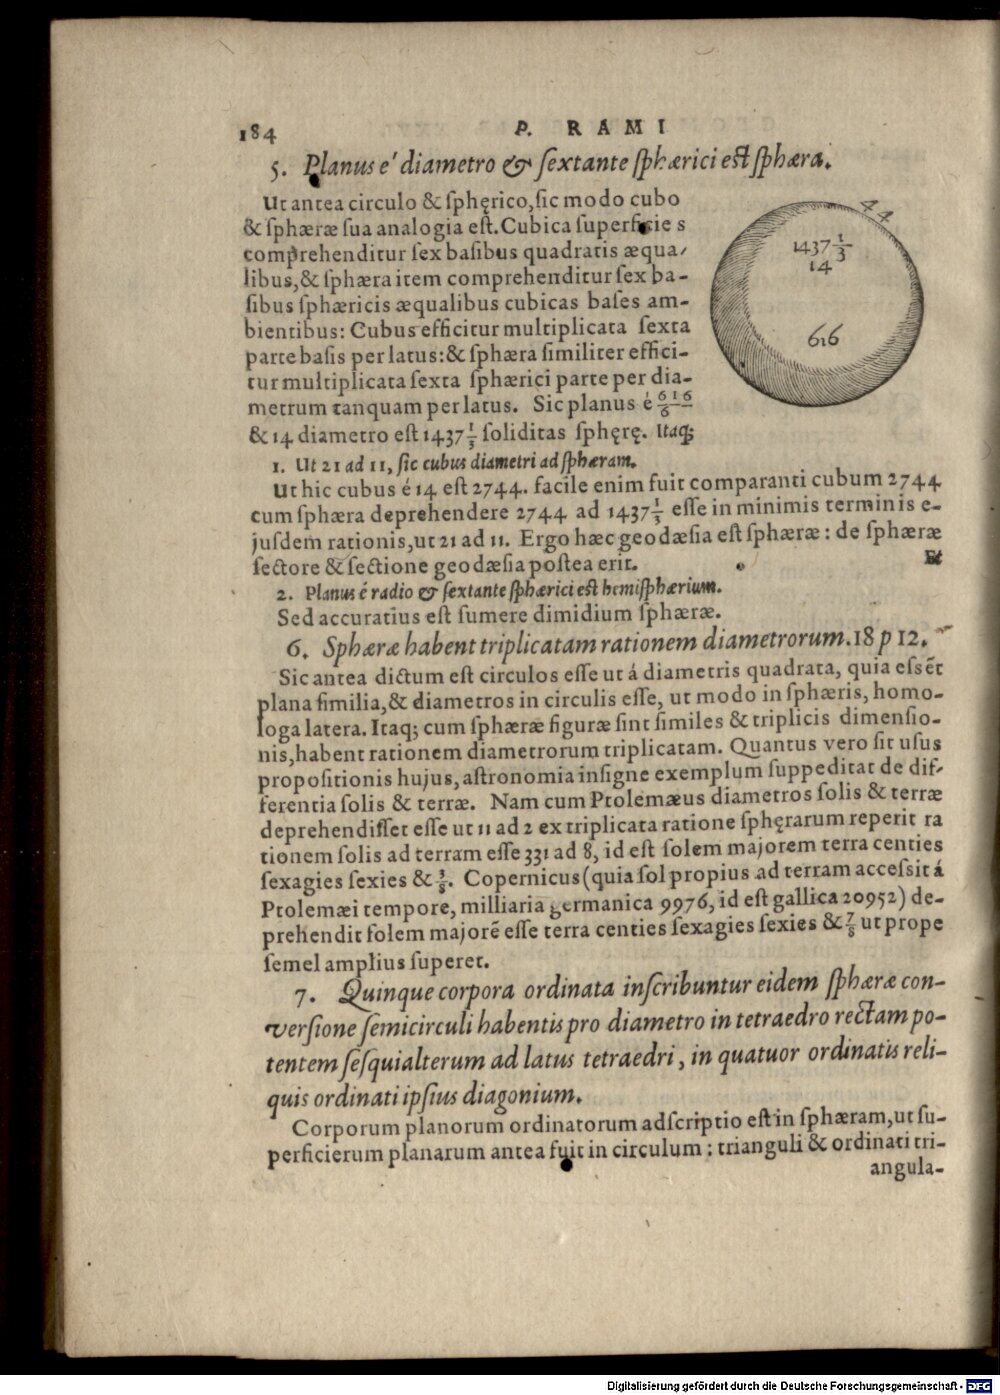 184
P. RAMI
5. Planus é diametro & ſextante ſphærici eſt ſphæra.
Ut antea circulo & ſphęrico, ſic modo cubo
& ſphæræ ſua analogia eſt. Cubica ſuperficie s
comprehenditur ſex baſibus quadratis æqua-
libus, & ſphæra item comprehenditur ſex ba-
ſibus ſphæricis æqualibus cubicas baſes am-
bientibus: Cubus efficitur multiplicata ſexta
parte baſis per latus: & ſphæra ſimiliter effici-
tur multiplicata ſexta ſphærici parte per dia-
metrum tanquam per latus. Sic planus é 616/6
& 14 diametro eſt 1437 1/3 ſoliditas ſphęrę. Itaq;
44
1437 1/3
14
616
1. Ut 21 ad 11, ſic cubus diametri ad ſphæram.
Ut hic cubus é 14 eſt 2744. facile enim fuit comparanti cubum 2744
cum ſphæra deprehendere 2744 ad 1437 1/3 eſſe in minimis terminis e-
juſdem rationis, ut 21 ad 11. Ergo hæc geodæſia eſt ſphæræ: de ſphæræ
ſectore & ſectione geodæſia poſtea erit. Et
2. Planus é radio & ſextante ſphærici eſt hemiſphærium.
Sed accuratius eſt ſumere dimidium ſphæræ.
6. Sphæræ habent triplicatam rationem diametrorum. 18 p 12.
Sic antea dictum eſt circulos eſſe ut á diametris quadrata, quia eſsēt
plana ſimilia, & diametros in circulis eſſe, ut modo in ſphæris, homo-
loga latera. Itaq; cum ſphæræ figuræ ſint ſimiles & triplicis dimenſio-
nis, habent rationem diametrorum triplicatam. Quantus vero ſit uſus
propoſitionis hujus, aſtronomia inſigne exemplum ſuppeditat de dif-
ferentia ſolis & terræ. Nam cum Ptolemæus diametros ſolis & terræ
deprehendiſſet eſſe ut 11 ad 2 ex triplicata ratione ſphęrarum reperit ra
tionem ſolis ad terram eſſe 331 ad 8, id eſt ſolem majorem terra centies
ſexagies ſexies & 3/8. Copernicus (quia ſol propius ad terram acceſsit á
Ptolemæi tempore, milliaria germanica 9976, id eſt gallica 20952) de-
prehendit ſolem majorē eſſe terra centies ſexagies ſexies & 7/8 ut prope
ſemel amplius ſuperet.
7. Quinque corpora ordinata inſcribuntur eidem ſphæræ con-
verſione ſemicirculi habentis pro diametro in tetraedro rectam po-
tentem ſeſquialterum ad latus tetraedri, in quatuor ordinatis reli-
quis ordinati ipſius diagonium.
Corporum planorum ordinatorum adſcriptio eſt in ſphæram, ut ſu-
perficierum planarum antea fuit in circulum: trianguli & ordinati tri-
angula-
Digitalisierung gefördert durch die Deutsche Forschungsgemeinschaft - DFG